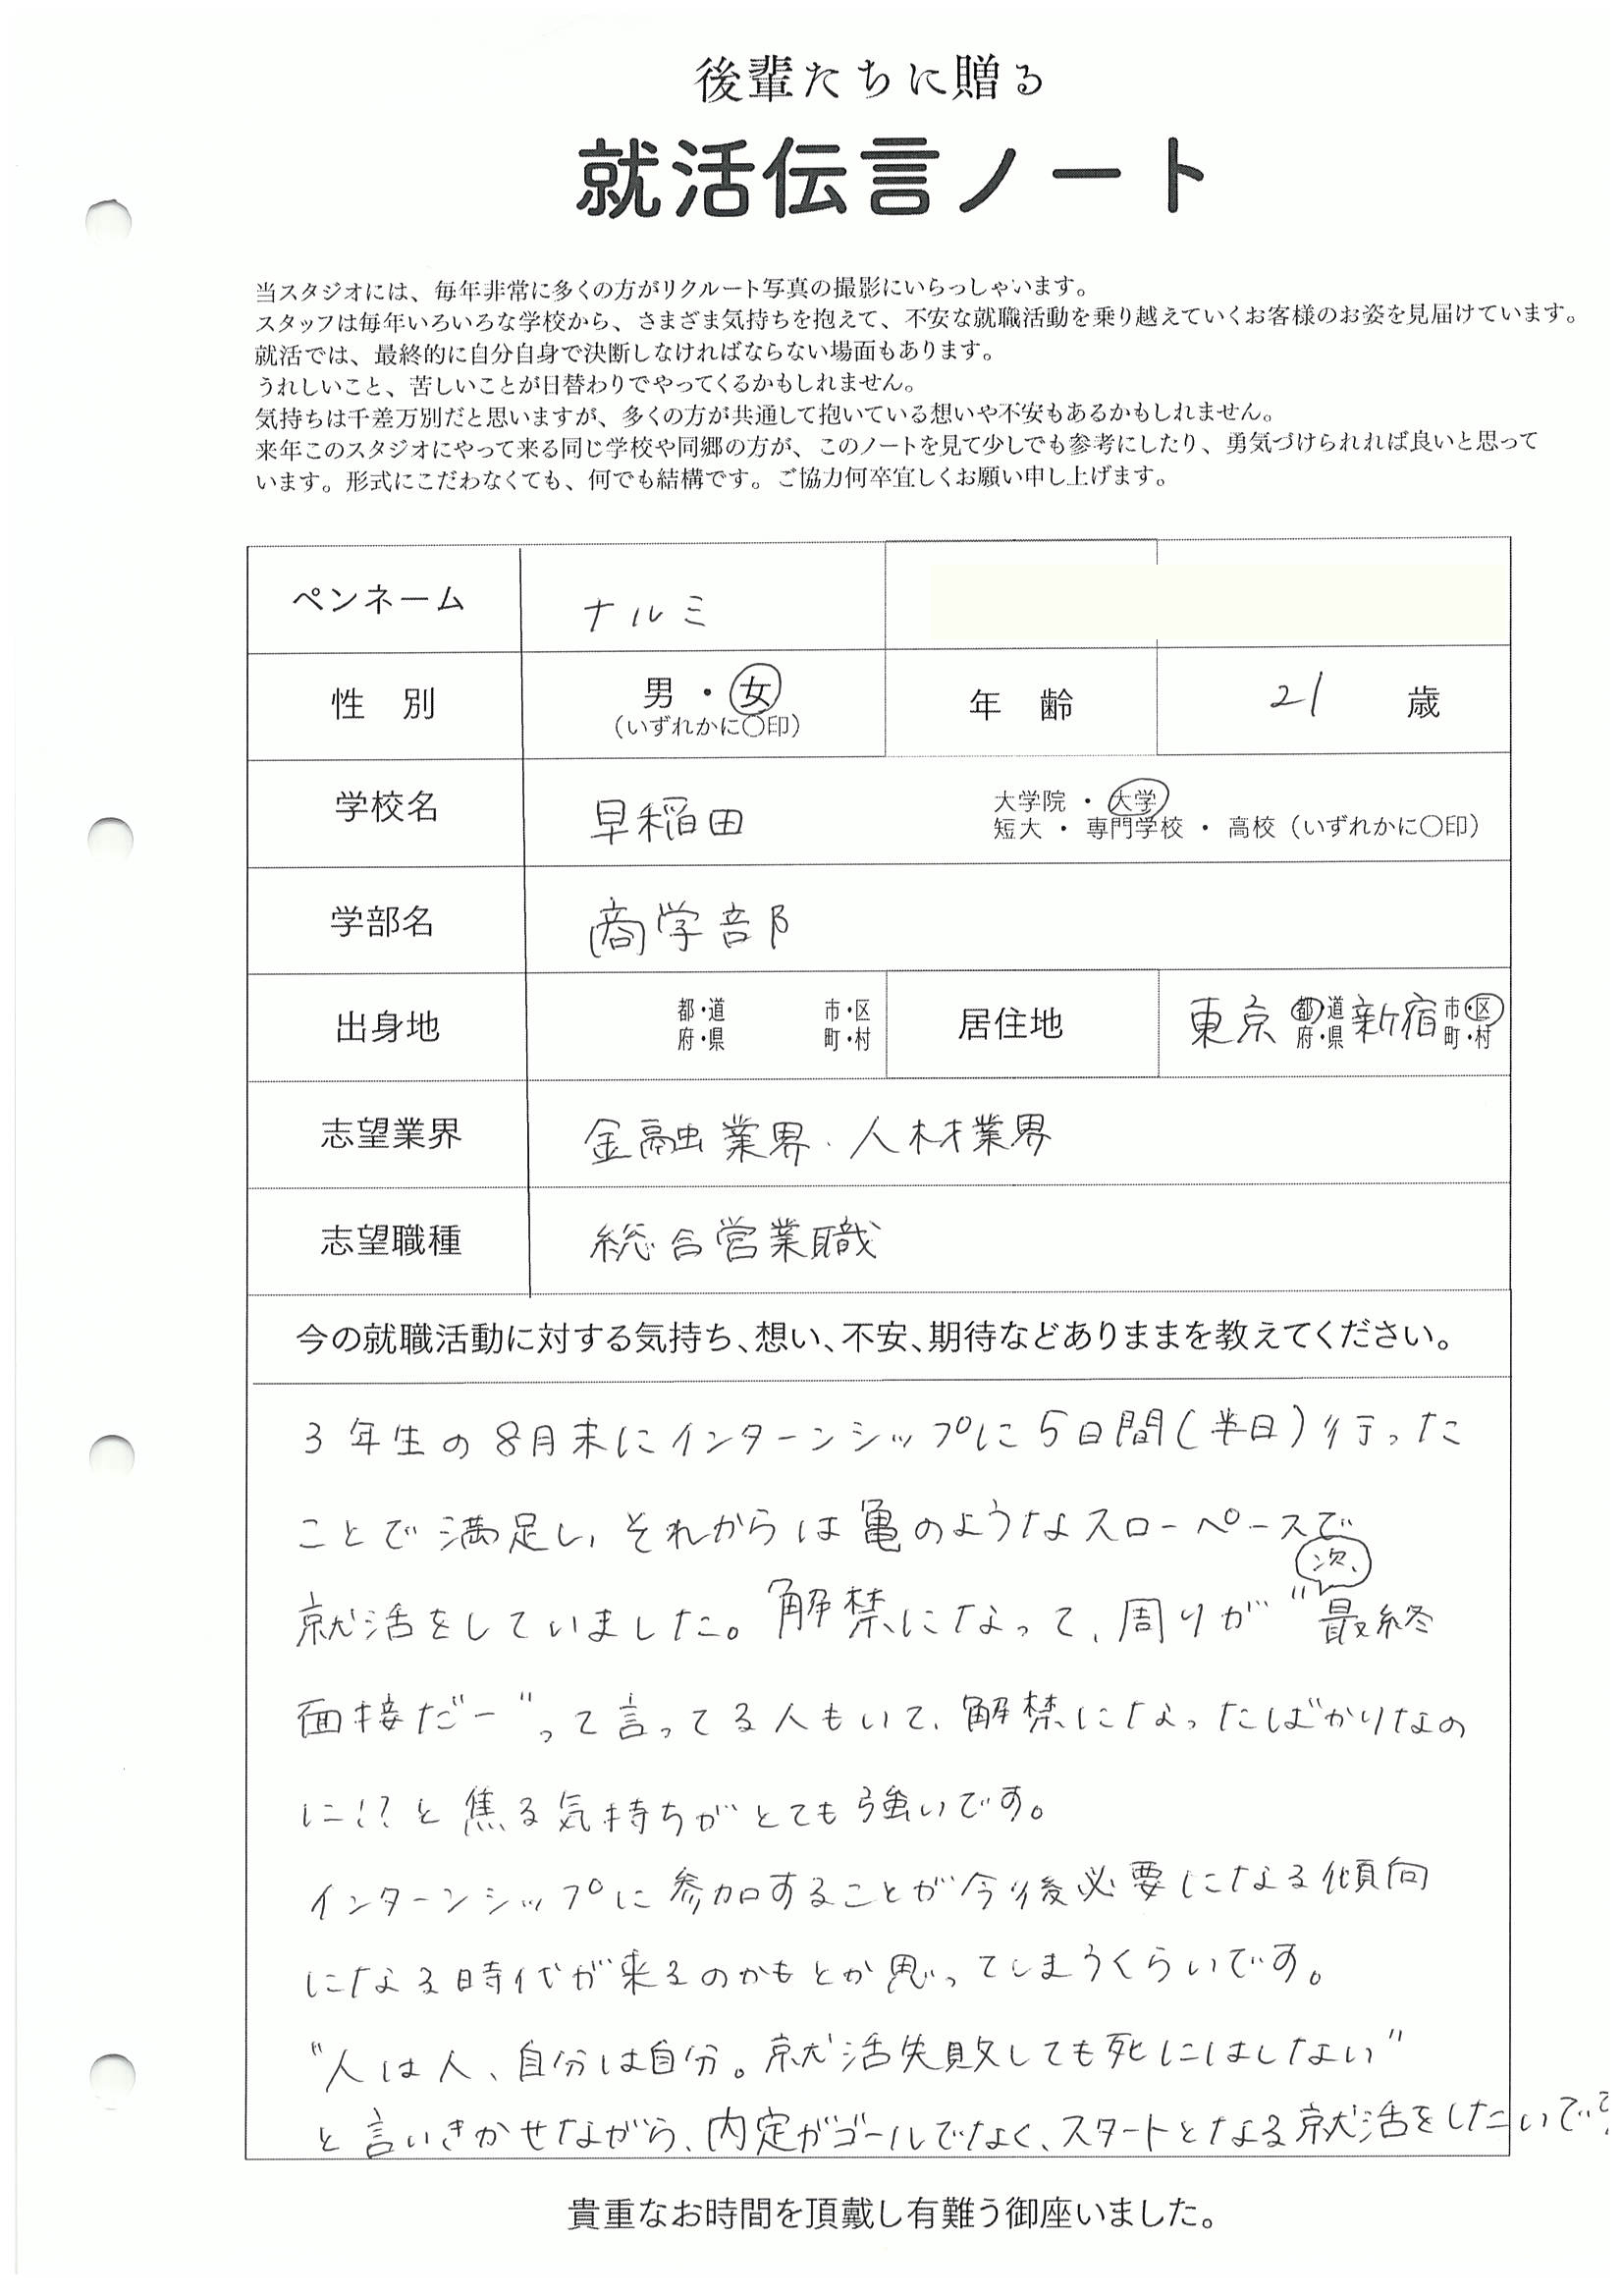 後輩たちに贈る
就活伝言ノート
当スタジオには、毎年非常に多くの方がリクルート写真の撮影にいらっしゃいます。
スタッフは毎年いろいろな学校から、さまざま気持ちを抱えて、不安な就職活動を乗り越えていくお客様のお姿を見届けています。
就活では、最終的に自分自身で決断しなければならない場面もあります。
うれしいこと、苦しいことが日替わりでやってくるかもしれません。
気持ちは千差万別だと思いますが、多くの方が共通して抱いている想いや不安もあるかもしれません。
来年このスタジオにやって来る同じ学校や同郷の方が、このノートを見て少しでも参考にしたり、勇気づけられれば良いと思って
います。形式にこだわなくても、何でも結構です。ご協力何卒宜しくお願い申し上げます。
ペンネーム ナルミ
性 別 男 ・ 女 年 齢 21 歳
(いずれかに〇印)
学校名 早稲田 大学院 ・ 大学
短大 ・ 専門学校 ・ 高校(いずれかに〇印)
学部名 商学部
出身地 都・道 市・区 居住地 東京 都・道 新宿 市・区
府・県 町・村 府・県 町・村
志望業界 金融業界・人材業界
志望職種 総合営業職
今の就職活動に対する気持ち、想い、不安、期待などありままを教えてください。
3年生の8月末にインターンシップに5日間(半日)行った
ことで満足し、それからは亀のようなスローペースで
次、
就活をしていました。解禁になって、周りが"最終
面接だー"って言ってる人もいて、解禁になったばかりなの
に!?と焦る気持ちがとても強いです。
インターンシップに参加することが今後必要になる傾向
になる時代が来るのかもとか思ってしまうくらいです。
"人は人、自分は自分。就活失敗しても死にはしない"
と言いきかせながら、内定がゴールでなく、スタートとなる就活をしたいです
貴重なお時間を頂戴し有難う御座いました。